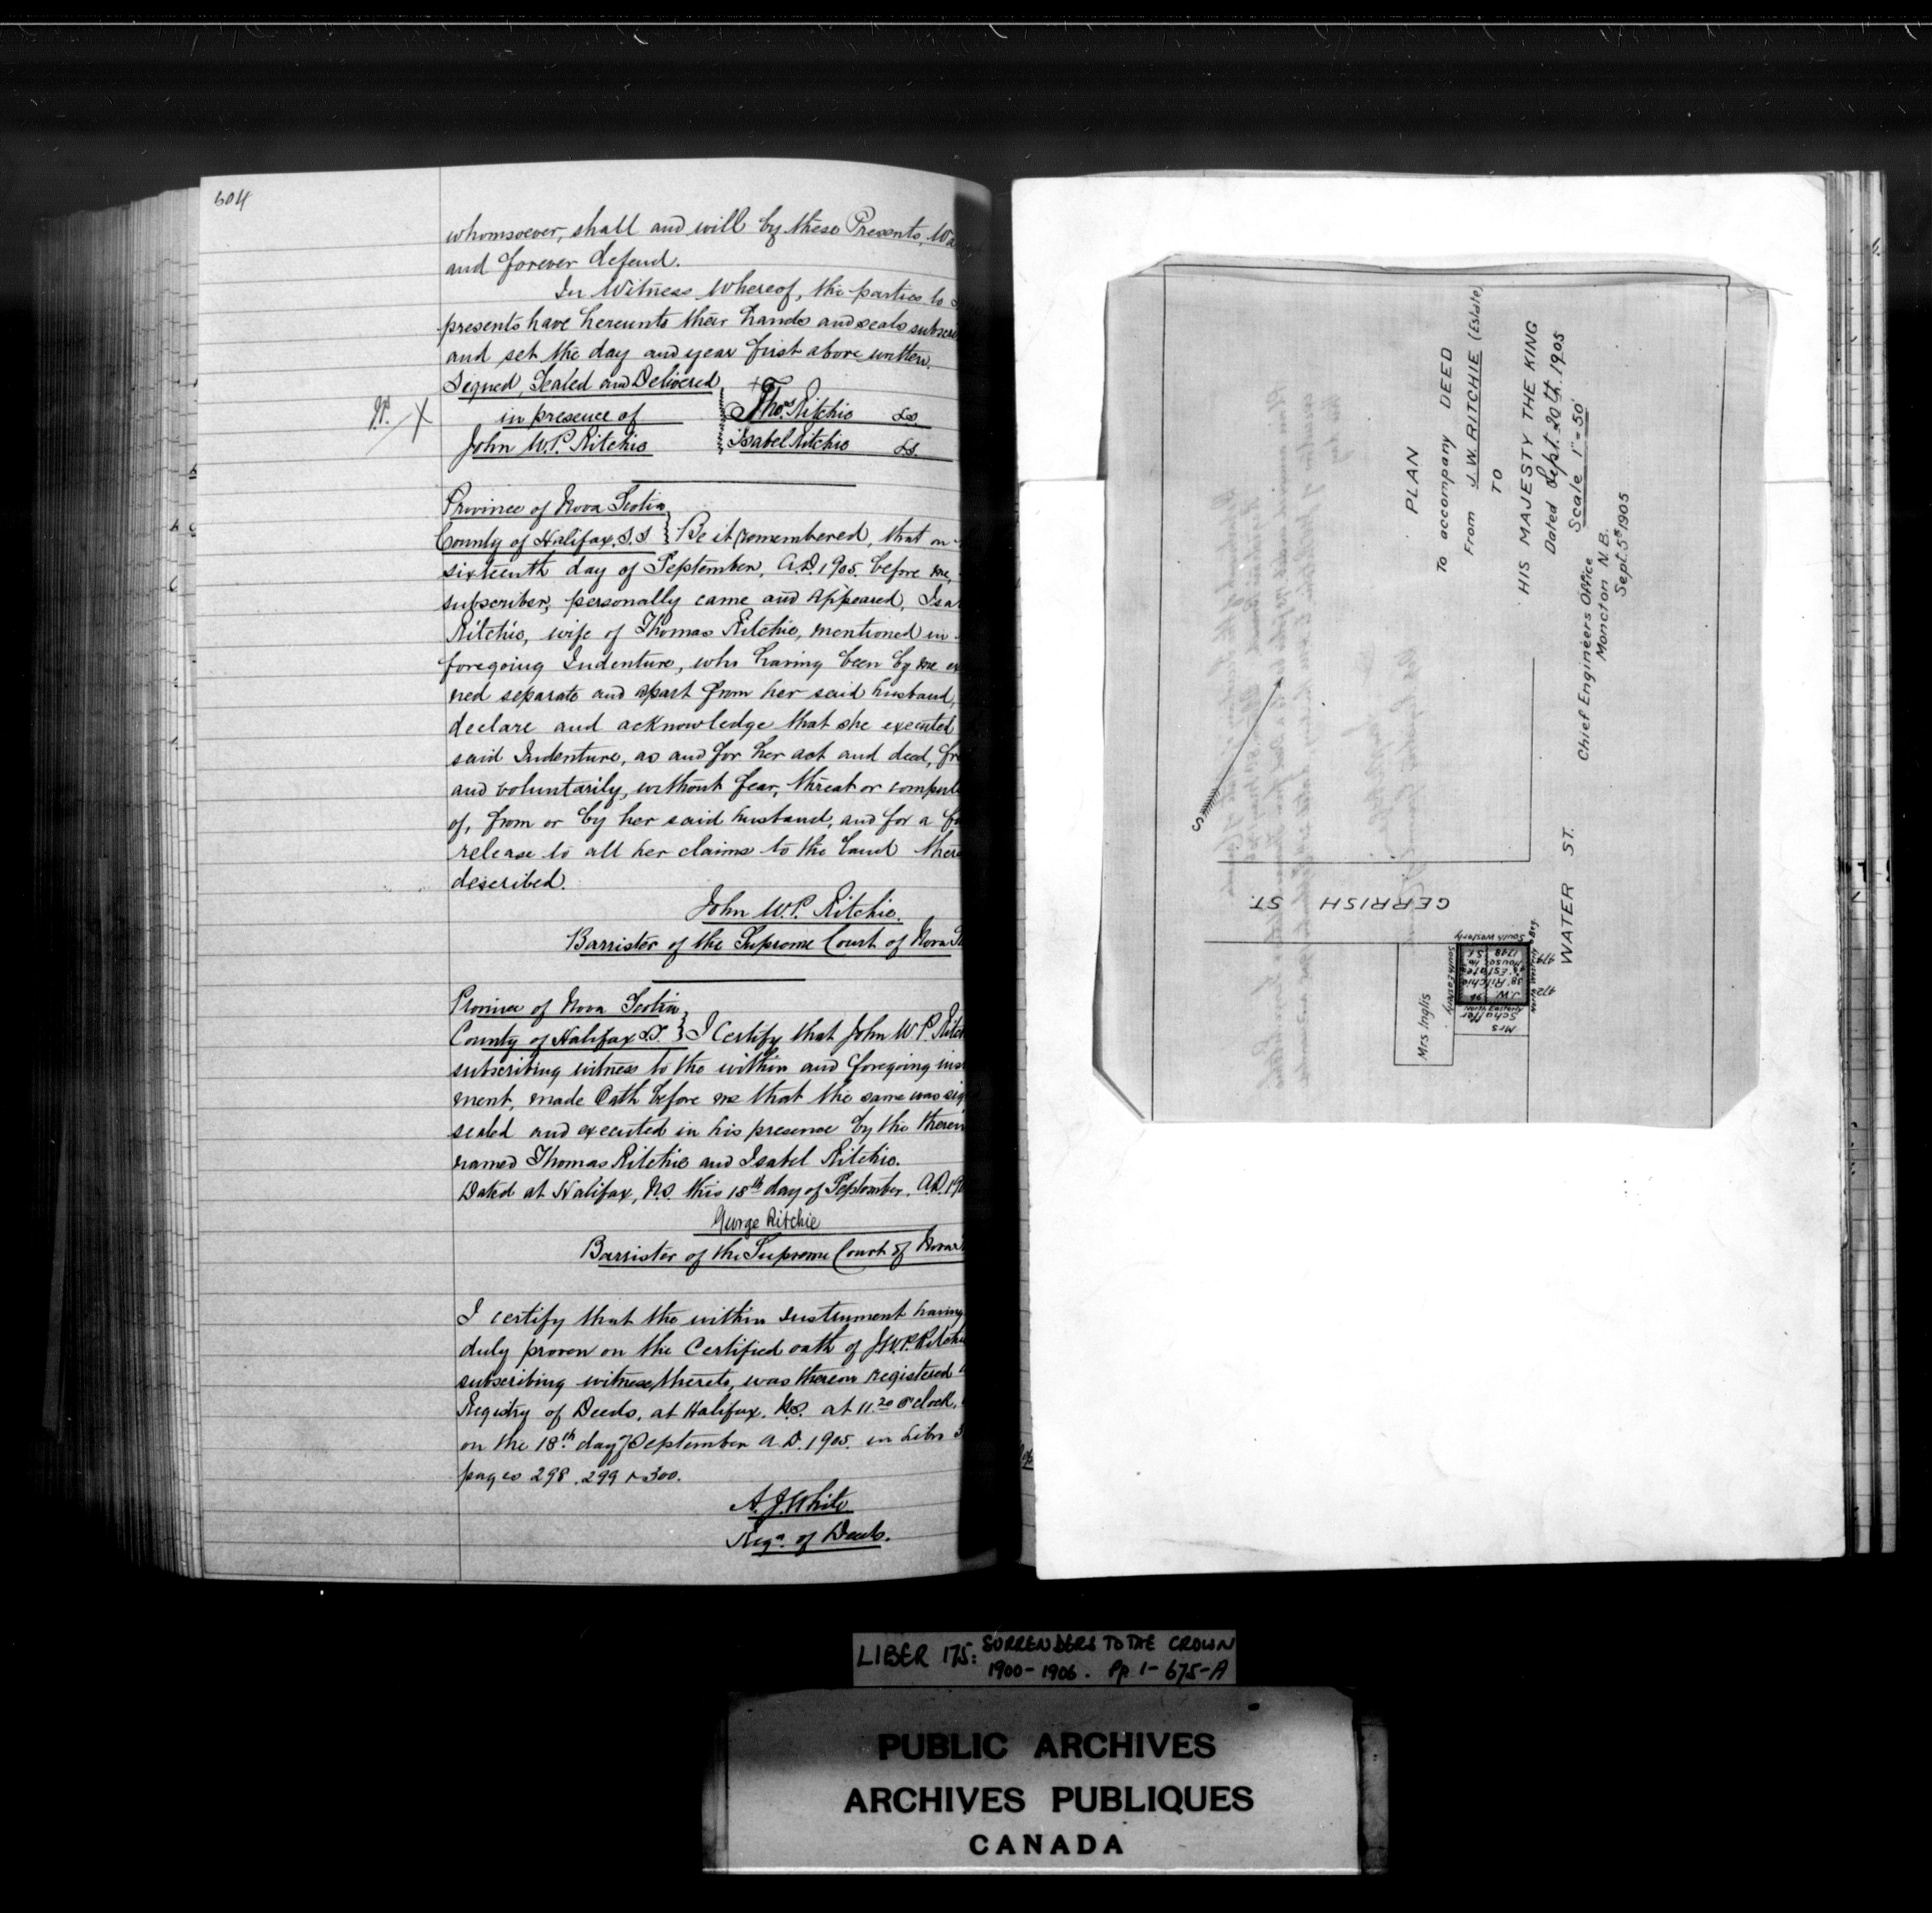 604
whomsoever, shall and will by these Presents,
and forever defend.
In Witness Whereof, the parties to
presents have hereunto their hands and seals
and set the day and year first above written.
Signed, Sealed and Delivered
in presence of
John W.P. Ritchie
Thos. Ritchie L.S.
Isabel Ritchie L.S.
Province of Nova Scotia
County of Halifax. S.S. } Be it remembered, that on
sixteenth day of September, A.D. 1905. before me,
subscriber, personally came and appeared,
Ritchie, wife of Thomas Ritchie, mentioned in
foregoing Indenture, who having been by me
ned separate and apart from her said husband,
declare and acknowledge that she executed
said Indenture, as and for her act and deed,
and voluntarily, without fear, threat or
of, from or by her said husband, and for a
release to all her claims to the land
described.
John W.P. Ritchie.
Barrister of the Supreme Court of Nova
Province of Nova Scotia
County of Halifax S.S. } I Certify that John W.P.
subscribing witness to the within and foregoing
ment, made Oath before me that the same was
sealed and executed in his presence by the
named Thomas Ritchie and Isabel Ritchie.
Dated at Halifax, N.S. this 18th day of September, A.D.
George Ritchie
Barrister of the Supreme Court of Nova
I certify that the within Instrument having
duly proven on the Certified oath of J.W.P. Ritchie
subscribing witness thereto, was thereon registered
Registry of Deeds, at Halifax, N.S. at 11.20 o'clock,
on the 18th day of September A.D. 1905. in Libro
pages 298, 299 & 300.
A.J. White
Regr. of Deeds.
PLAN
To accompany DEED
From J. W. RITCHIE (Estate)
TO
HIS MAJESTY THE KING
Dated Sept. 20th. 1905
Scale 1" = 50'
Chief Engineers Office
Moncton N.B.
Sept. 5th 1905
S
GERRISH ST.
WATER ST.
Mrs Inglis
Mrs
Schaffer
J.W.
Ritchie
Estate
House
1748
South Westerly
South Easterly
LIBER 175: SURRENDERS TO THE CROWN
1900-1906. Pp. 1-675-A
PUBLIC ARCHIVES
ARCHIVES PUBLIQUES
CANADA